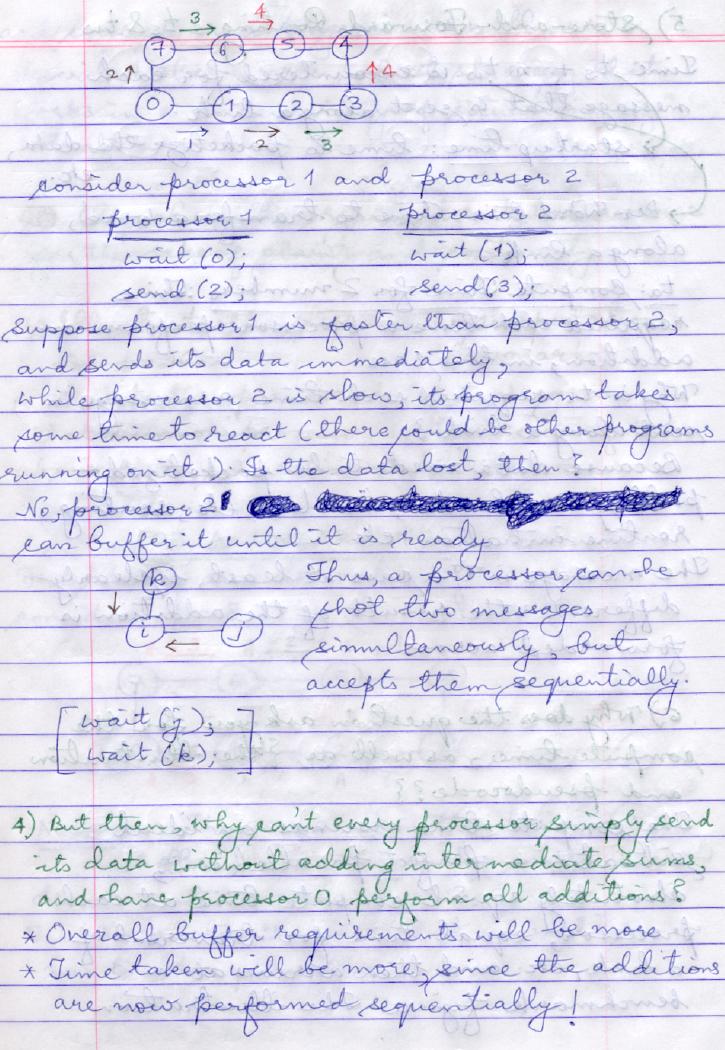 3 4
7 6 5 4
2 4
0 1 2 3
1 2 3
consider processor 1 and processor 2
processor 1 processor 2
wait (0); wait (1);
send (2); send (3);
Suppose processor 1 is faster than processor 2,
and sends its data immediately,
while processor 2 is slow, its program takes
some time to react (there could be other programs
running on it!). Is the data lost, then?
No, processor 2
can buffer it until it is ready
k Thus, a processor can be
shot two messages
i j simultaneously, but
accepts them sequentially.
wait (j);
wait (k);
4) But then, why can't every processor simply send
its data without adding intermediate sums,
and have processor 0 perform all additions?
* Overall buffer requirements will be more
* Time taken will be more, since the additions
are now performed sequentially!